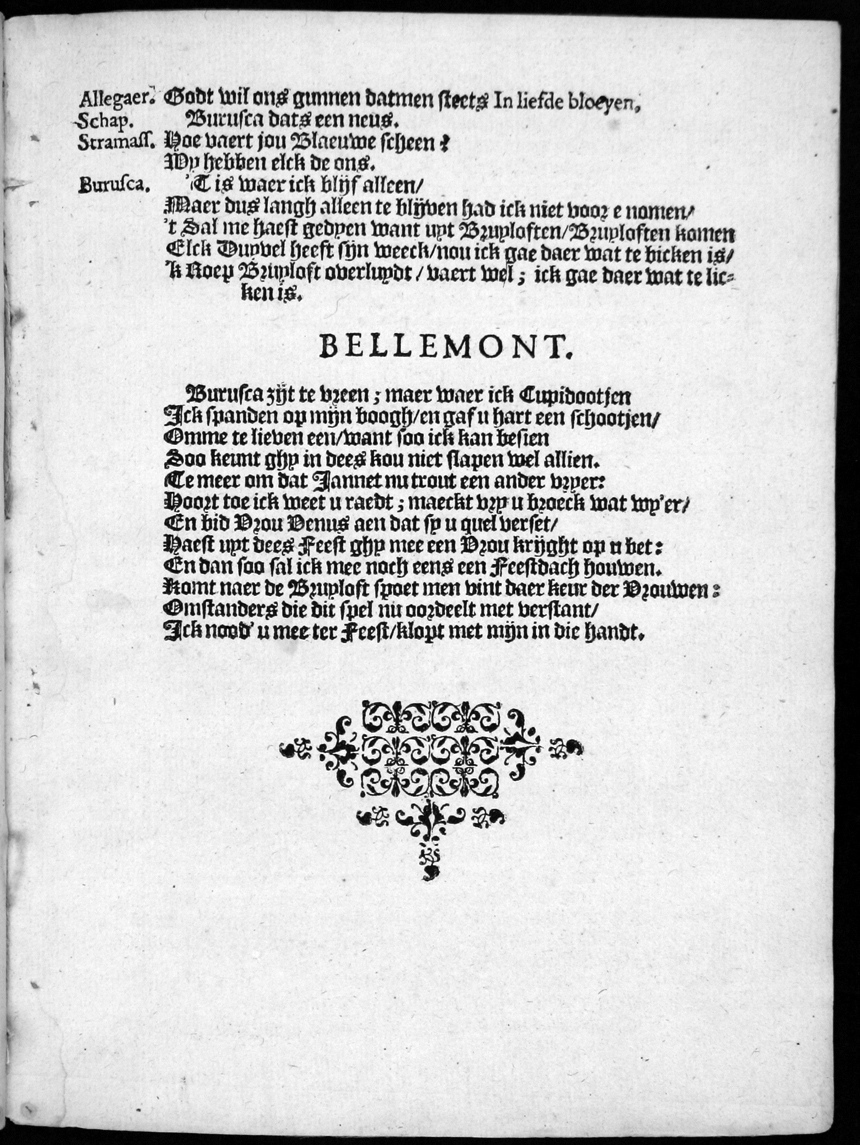 Allegaer. Godt wil ons gunnen datmen steets In liefde bloeyen,
Schap. Burusca dats een neus.
Stramass. Hoe vaert jou Blaeuwe scheen?
Wy hebben elck de ons.
Burusca. 'T is waer ick blijf alleen/
Maer dus langh alleen te blijven had ick niet voor e nomen/
't Sal me haest gedyen want uyt Bruyloften/Bruyloften komen
Elck Duyvel heeft sijn weeck/nou ick gae daer wat te bicken is/
'k Roep Bruyloft overluydt / vaert wel; ick gae daer wat te lic-
ken is.
BELLEMONT.
Burusca zijt te vreen; maer waer ick Cupidootjen
Ick spanden op mijn boogh/en gaf u hart een schootjen/
Omme te lieven een/want soo ick kan besien
Soo keunt ghy in dees kou niet slapen wel allien.
Te meer om dat Jannet nu trout een ander vryer:
Hoort toe ick weet u raedt; maeckt vry u broeck wat wy'er/
En bid Vrou Venus aen dat sy u quel verset/
Haest uyt dees Feest ghy mee een Vrou krijght op u bet:
En dan soo sal ick mee noch eens een Feestdach houwen.
Komt naer de Bruyloft spoet men vint daer keur der Vrouwen:
Omstanders die dit spel nu oordeelt met verstant/
Ick nood' u mee ter Feest/klopt met mijn in die handt.